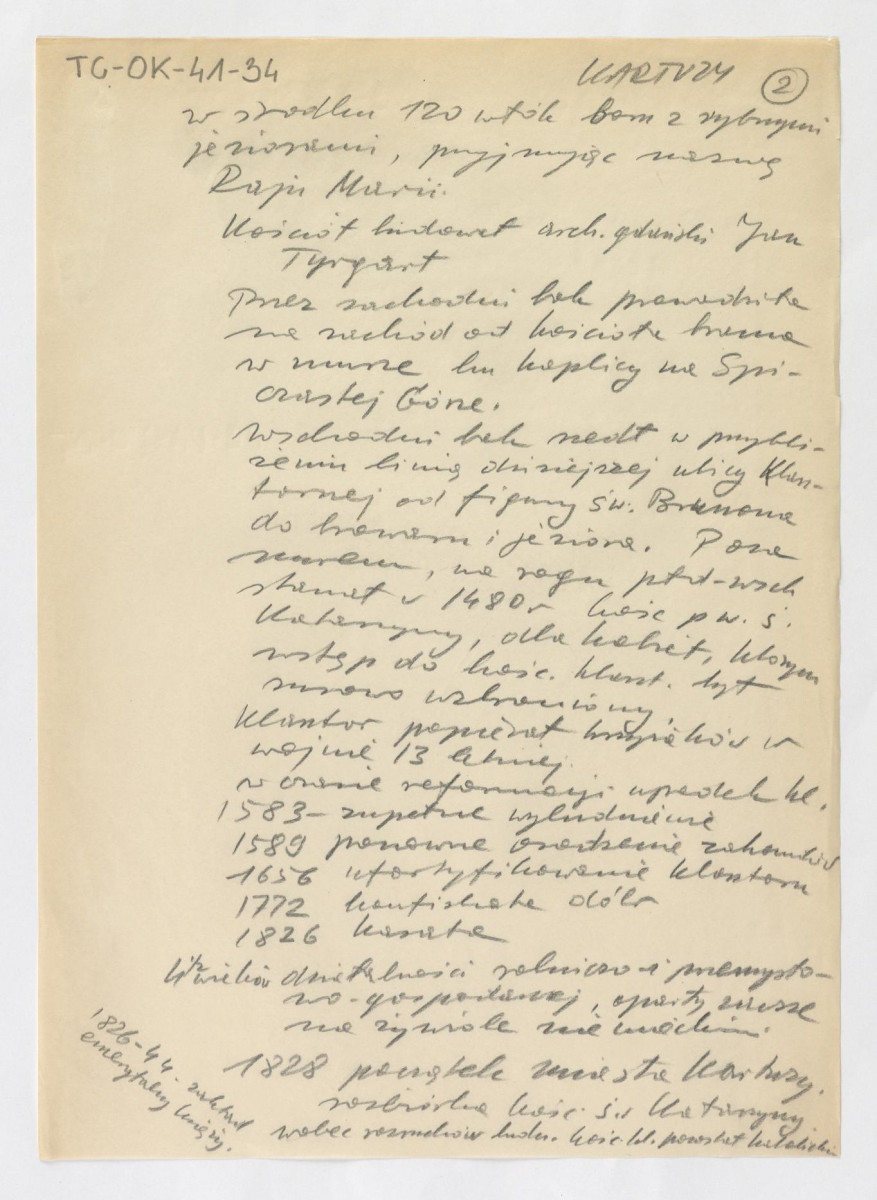 TG-OK-41-34
KARTUZY 2
w środku 120 włók boru z rybnymi
jeziorami, przyjmując nazwę
Raju Marii.
Kościół budował arch. gdański Jan
Tyrgart
Przez zachodni bok prowadziła
na zachód od kościoła brama
w murze ku kaplicy na Spi-
czastej Górze.
Wschodni bok szedł w przybli-
żeniu linią dzisiejszej ulicy Klasz-
tornej od figury św. Brunona
do browaru i jeziora. Poza
murem, na rogu płd-wsch
stanął w 1480 r kośc p w. ś.
Katarzyny, dla kobiet, którym
wstęp do kośc. klaszt. był
surowo wzbroniony,
Klasztor popierał krzyżaków w
wojnie 13 letniej.
w czasie reformacji upadek kl.
1583 - zupełne wyludnienie
1589 ponowne osadzenie zakonników
1656 ufortyfikowanie klasztoru
1772 konfiskata dóbr
1826 kasata
4½ wieków działalności rolniczo-i przemysło-
wo-gospodarczej, oparty zawsze
na żywiole niemieckim.
1826-44 - zakład
emerytalny księży.
1828 początek miasta Kartuzy.
rozbiórka kośc. św Katarzyny
wobec rozruchów ludn. kośc. kl. pozostał katolickim